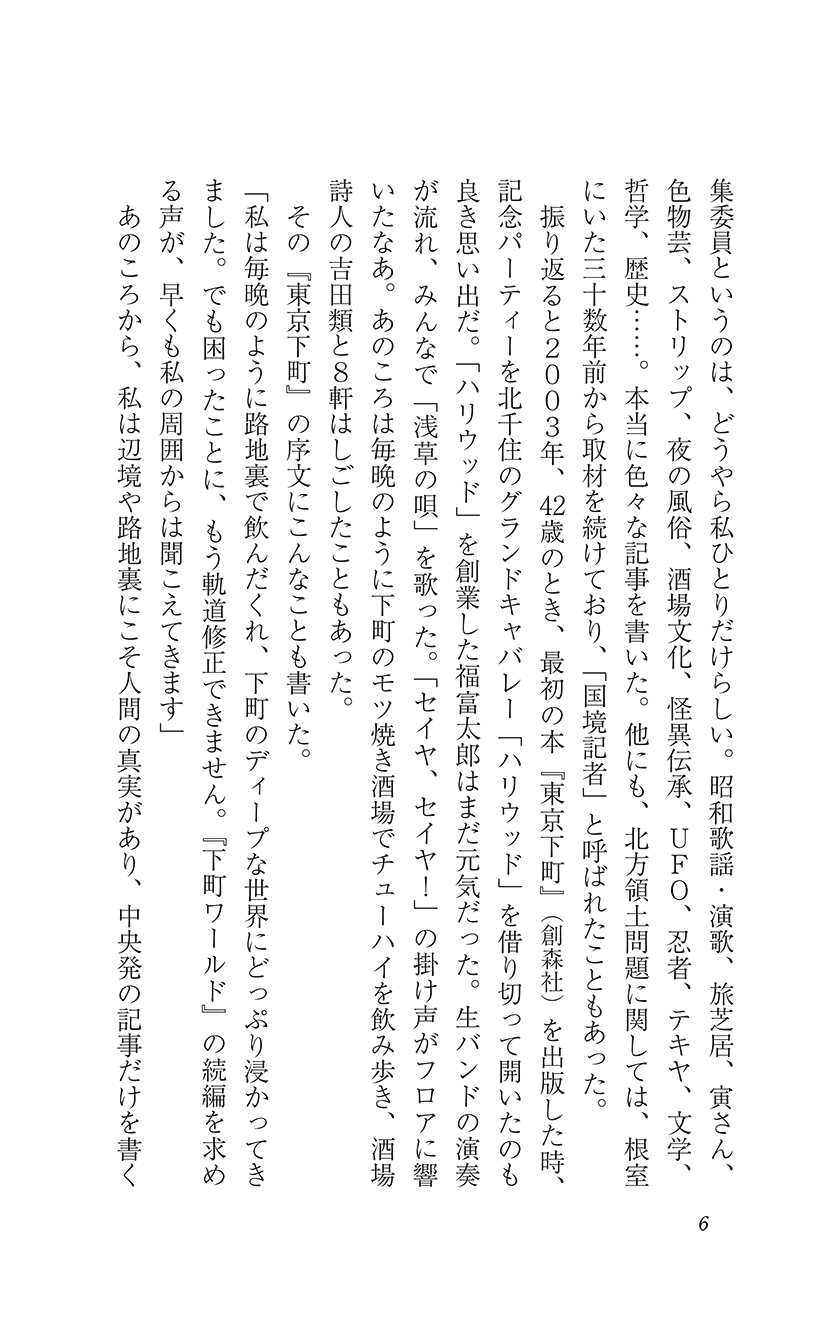 集委員というのは、どうやら私ひとりだけらしい。昭和歌謡・演歌、旅芝居、寅さん、
色物芸、ストリップ、夜の風俗、酒場文化、怪異伝承、UFO、忍者、テキヤ、文学、
哲学、歴史……。本当に色々な記事を書いた。他にも、北方領土問題に関しては、根室
にいた三十数年前から取材を続けており、「国境記者」と呼ばれたこともあった。
振り返ると2003年、42歳のとき、最初の本『東京下町』（創森社）を出版した時、
記念パーティーを北千住のグランドキャバレー「ハリウッド」を借り切って開いたのも
良き思い出だ。「ハリウッド」を創業した福富太郎はまだ元気だった。生バンドの演奏
が流れ、みんなで「浅草の唄」を歌った。「セイヤ、セイヤ！」の掛け声がフロアに響
いたなあ。あのころは毎晩のように下町のモツ焼き酒場でチューハイを飲み歩き、酒場
詩人の吉田類と8軒はしごしたこともあった。
その『東京下町』の序文にこんなことも書いた。
「私は毎晩のように路地裏で飲んだくれ、下町のディープな世界にどっぷり浸かってき
ました。でも困ったことに、もう軌道修正できません。『下町ワールド』の続編を求め
る声が、早くも私の周囲からは聞こえてきます」
あのころから、私は辺境や路地裏にこそ人間の真実があり、中央発の記事だけを書く
6